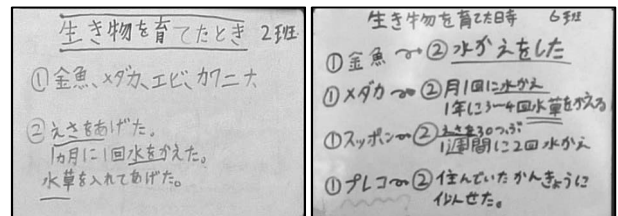 生き物を育てたとき 2班
①金魚、メダカ、エビ、カワニナ
②えさをあげた。
1ヵ月に1回水をかえた。
水草を入れてあげた。
生き物を育てた時 6班
①金魚→②水かえをした
①メダカ→②月1回に水かえ
1年に3〜4回水草をかえる
①スッポン→②えさを30つぶ
1週間に2回水かえ
①プレコ→②住んでいたかんきょうに
似せた。